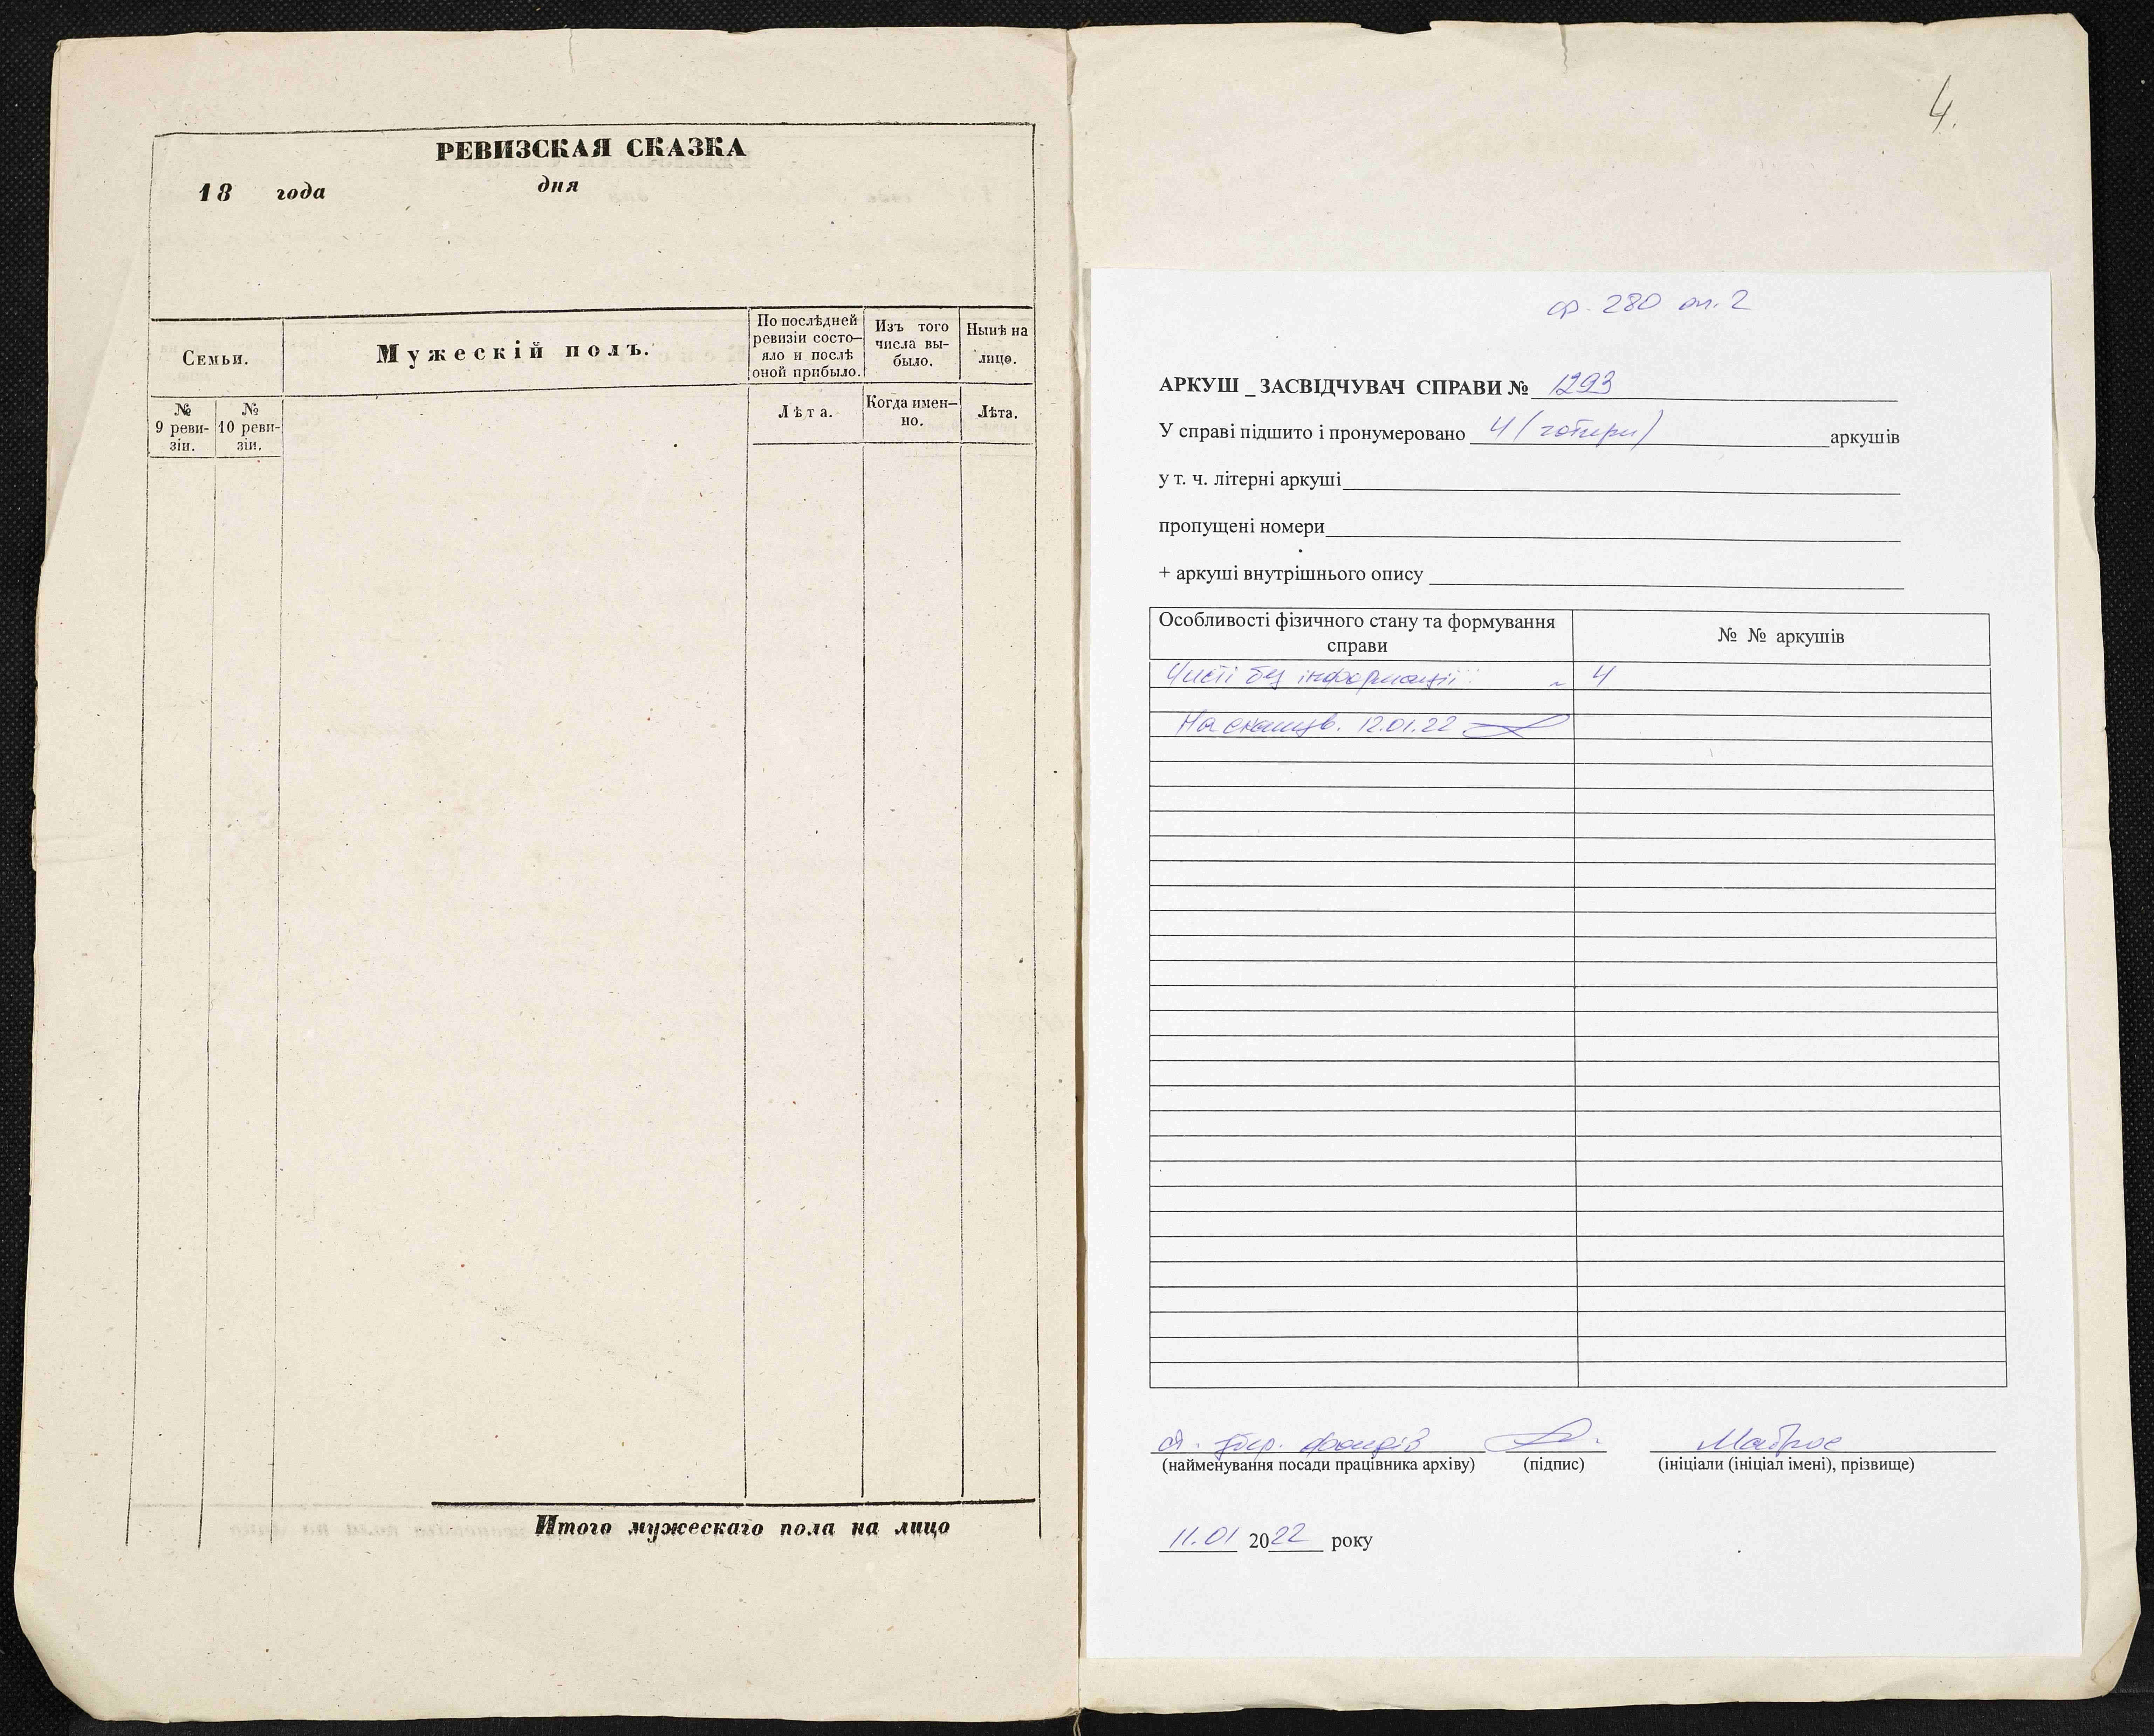 РЕВИЗСКАЯ СКАЗКА
18 года дня
Семьи.
Мужескій полъ.
По послѣдней
ревизіи состо-
яло и послѣ
оной прибыло.
Изъ того
числа вы-
было.
Нынѣ на
лице.
№
9 реви-
зіи.
№
10 реви-
зіи.
Лѣта.
Когда имен-
но.
Лѣта.
Итого мужескаго пола на лицо
4.
ф. 280 оп. 2
АРКУШ _ ЗАСВІДЧУВАЧ СПРАВИ № 1293
У справі підшито і пронумеровано 4 (чотири) аркушів
у т. ч. літерні аркуші
пропущені номери
+ аркуші внутрішнього опису
Особливості фізичного стану та формування
справи
№ № аркушів
Чисті без інформації 4
На 12.01.22
фондів
(найменування посади працівника архіву) (підпис) (ініціали (ініціал імені), прізвище)
11.01 2022 року